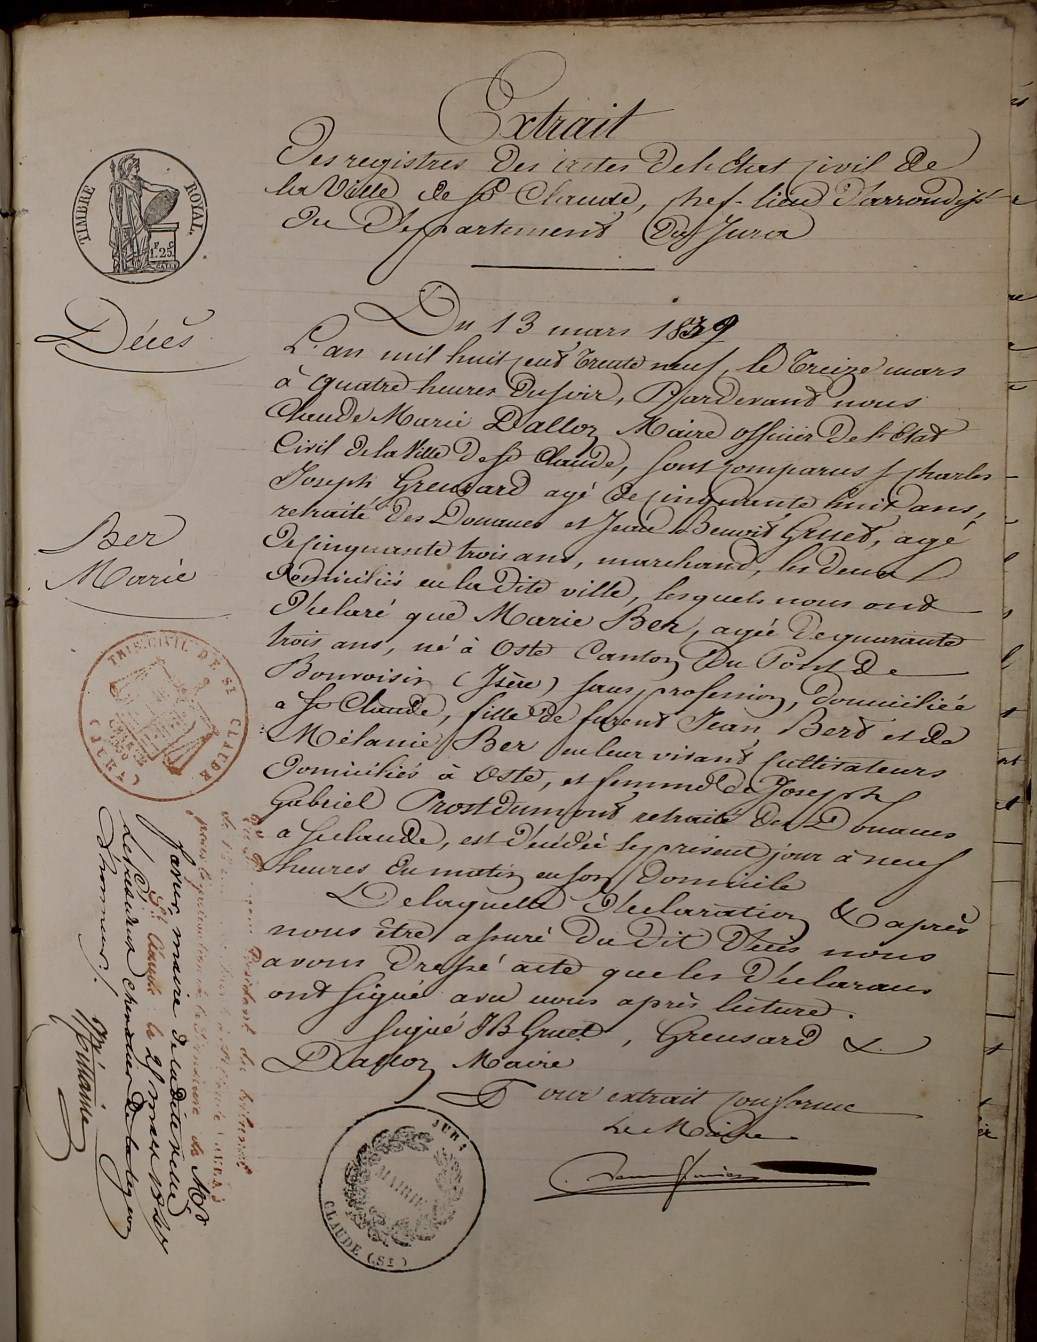 Extrait
Des registres des actes de l'Etat civil de
la Ville de St Claude, chef-lieu d'arrondisst
du Département du Jura
TIMBRE ROYAL.
1.25
Décès
Du 13 mars 1839
L'an mil huit cent trente neuf, le treize mars
à quatre heures du soir, Pardevant nous
Claude Marie Dalloz Maire officier de l'Etat
Civil de la Ville de St Claude, sont comparus s Charles
Joseph Greusard agé de cinquante huit ans,
retraité des Douanes et Jean Benoit Gruet, agé
de cinquante trois ans, marchand, les deux
domiciliés en la dite ville, lesquels nous ont
Déclaré que Marie Ber, agée de quarante
trois ans, né à Oste Canton du Pont de
Bonvoisin (Isère) sans profession, domiciliée
à St Claude, fille de furent Jean Bert et de
Mélanie Ber en leur vivant cultivateurs
domiciliés à Oste, et femme de Joseph
Gabriel Prost dumont retraité des Douanes
à St claude, est décédée le présent jour à neuf
heures du matin en son Domicile
De laquelle déclaration & après
nous être assuré du dit Décès nous
avons Dressé acte que les déclarans
ont signé avec nous après lecture.
signé JB Gruet, Greusard &
Dalloz Maire
Pour extrait conforme
Le Maire
Ber
Marie
TRIB. CIVIL DE St CLAUDE
(JURA)
président du tribunal
pour légalisation de la signature de Mr
maire de la dite ville
St Claude le
chevalier de la légion
d'honneur
JURA
MAIRIE
CLAUDE (St)